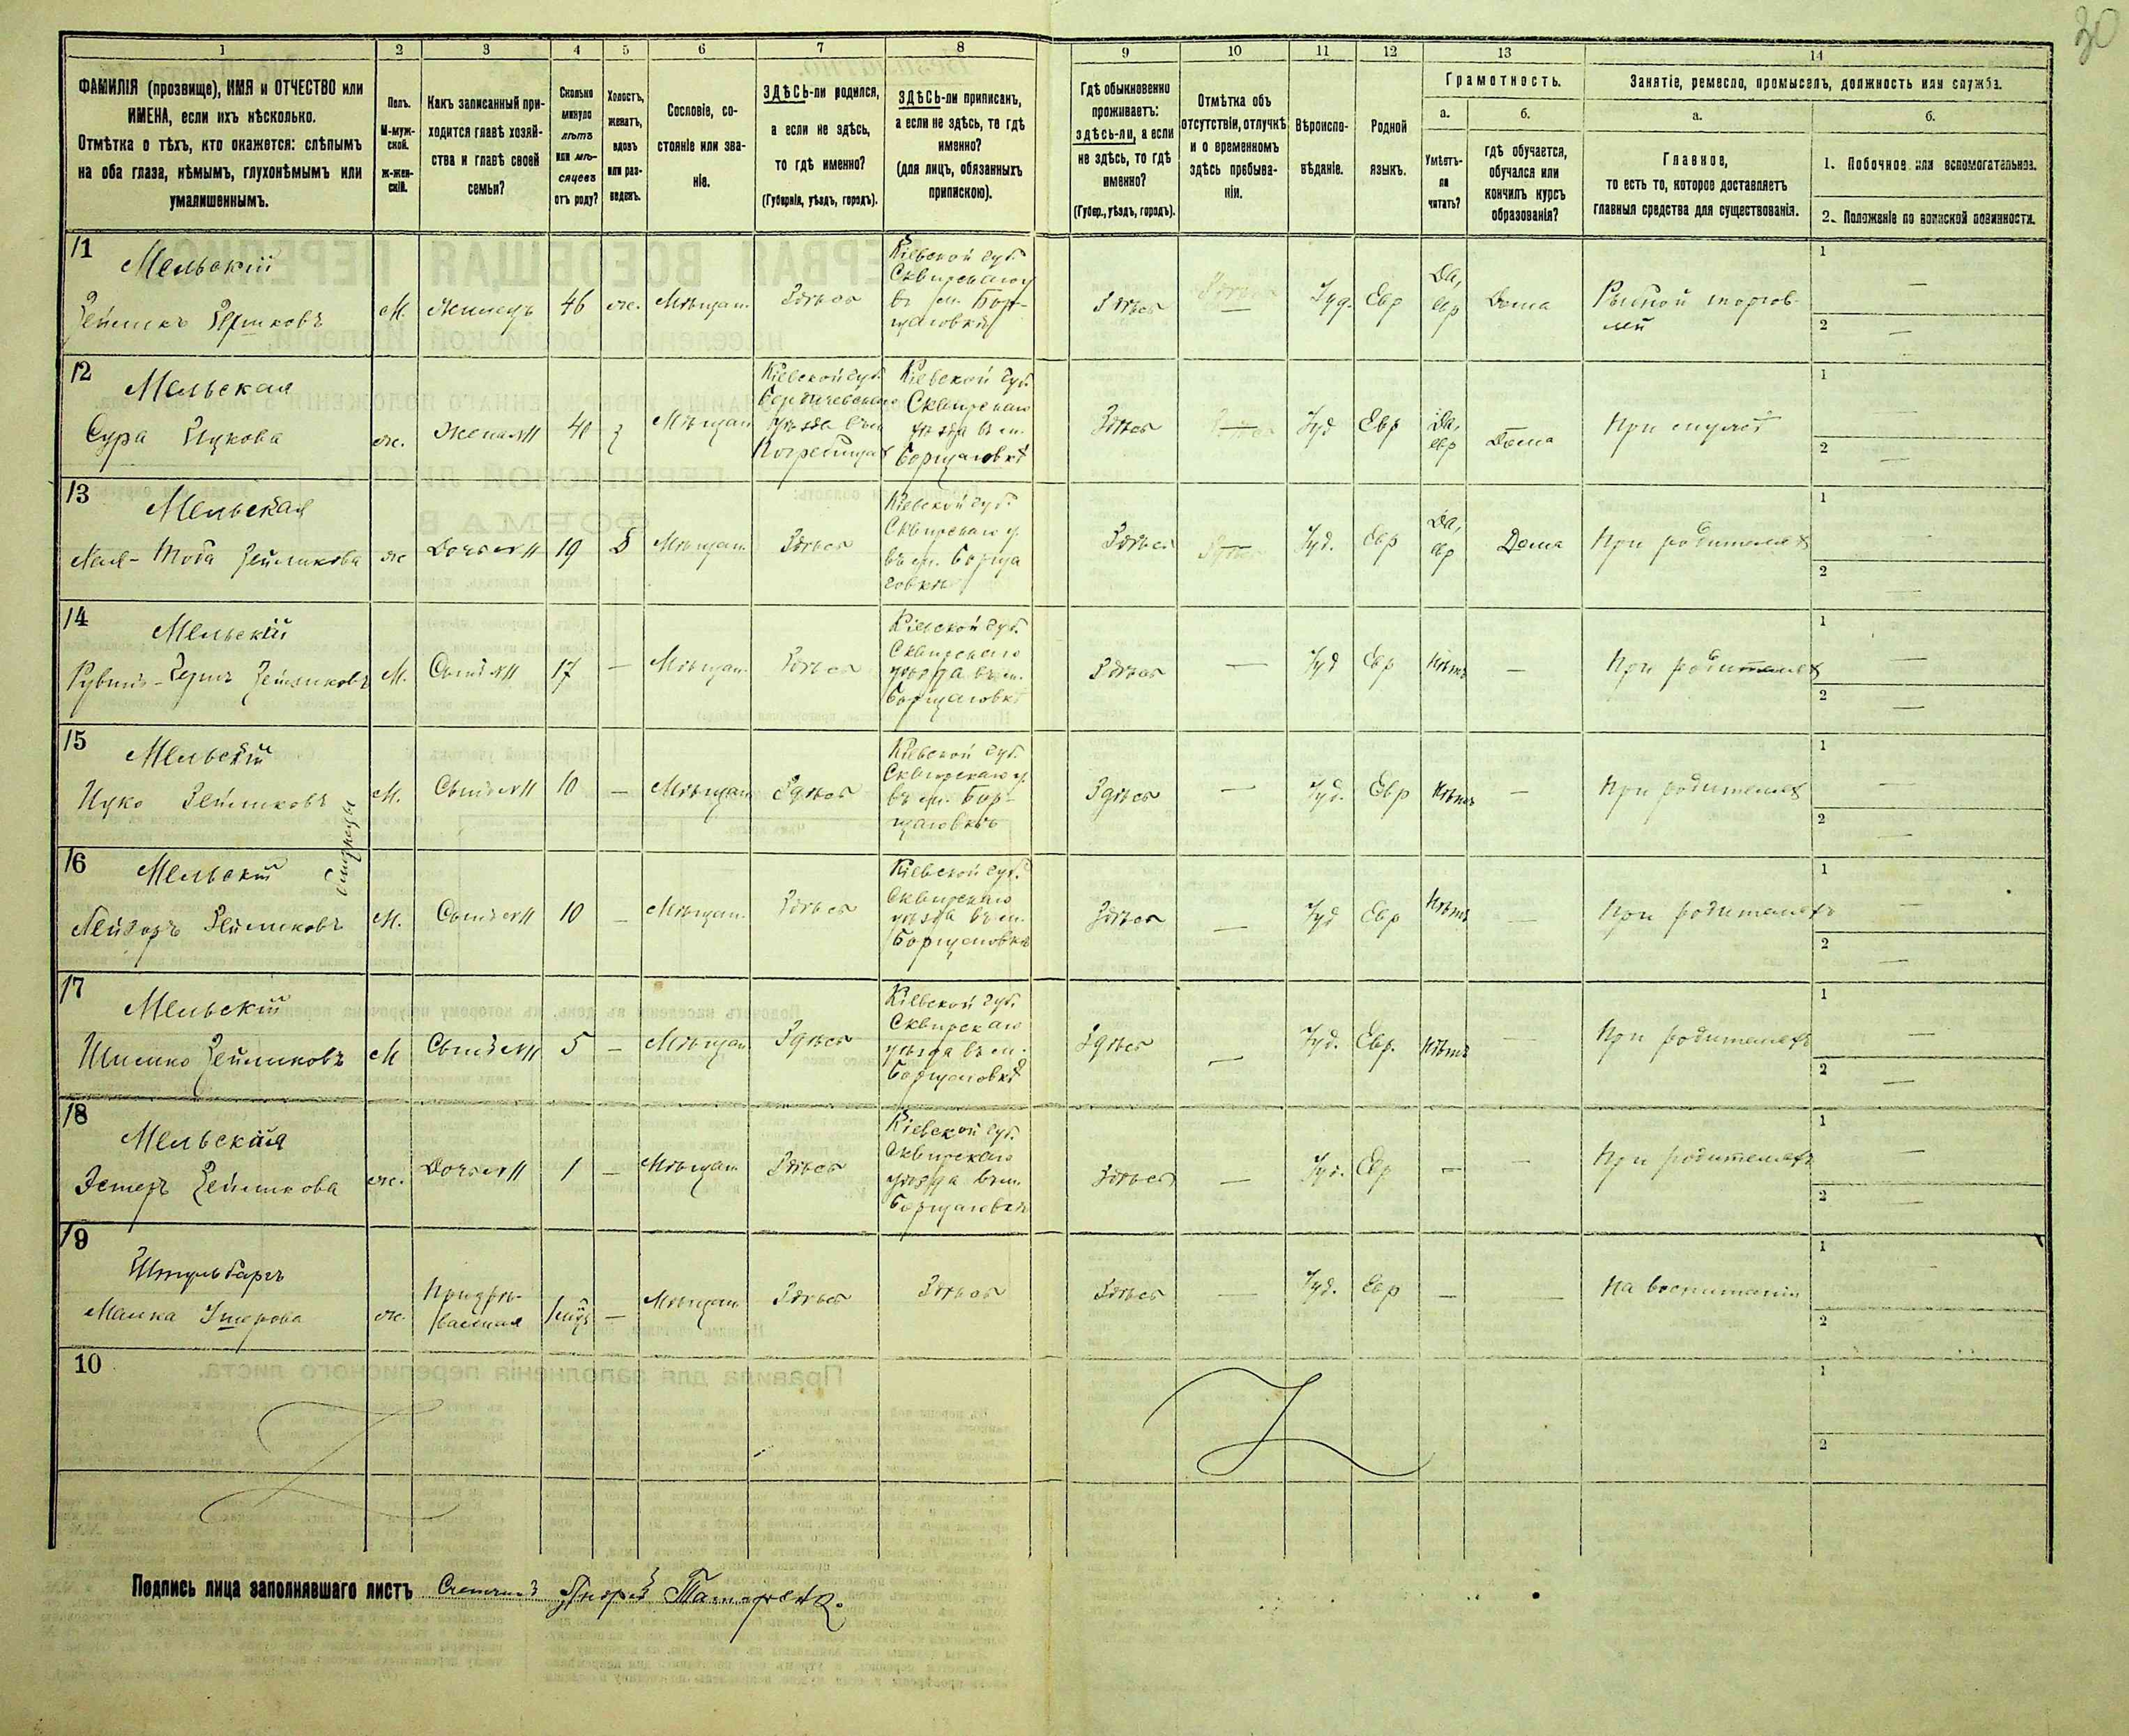 30
1 2 3 4 5 6 7 8 9 10 11 12 13 14
ФАМИЛІЯ (прозвище), ИМЯ и ОТЧЕСТВО или
ИМЕНА, если ихъ нѣсколько.
Отмѣтка о тѣхъ, кто окажется: слѣпымъ
на оба глаза, нѣмымъ, глухонѣмымъ или
умалишеннымъ.
Полъ.
М-муж-
ской.
Ж-жен-
скій.
Какъ записанный при-
ходится главѣ хозяй-
ства и главѣ своей
семьи?
Сколько
минуло
лѣтъ
или мѣ-
сяцевъ
отъ роду?
Холостъ,
женатъ,
вдовъ
или раз-
веденъ.
Сословіе, со-
стояніе или зва-
ніе.
ЗДѢСЬ-ли родился,
а если не здѣсь,
то гдѣ именно?
(Губернія, уѣздъ, городъ).
ЗДѢСЬ-ли приписанъ,
а если не здѣсь, то гдѣ
именно?
(для лицъ, обязанныхъ
припискою).
Гдѣ обыкновенно
проживаетъ:
здѣсь-ли, а если
не здѣсь, то гдѣ
именно?
(Губер., уѣздъ, городъ).
Отмѣтка объ
отсутствіи, отлучкѣ
и о временномъ
здѣсь пребыва-
ніи.
Вѣроиспо-
вѣданіе.
Родной
языкъ.
Грамотность.
а.
Умѣетъ-
ли
читать?
б.
гдѣ обучается,
обучался или
кончилъ курсъ
образованія?
Занятіе, ремесло, промыселъ, должность или служба.
а.
Главное,
то есть то, которое доставляетъ
главныя средства для существованія.
б.
1. Побочное или вспомогательное.
2. Положеніе по воинской повинности.
1
Мельскій
М. Жилецъ 46 ж. Мѣщан. Здѣсь
Кіевской губ.
Сквирскаго у
въ м. Бор-
щаговкѣ
Здѣсь — Іуд. Евр
Да,
евр
Дома
Рыбной торгов-
лей
1 —
2 —
2
Мельская
Сура Ицкова
ж. Жена 40 Мѣщан
Кіевской губ.
Бердичевскаго
уѣзда въ м
Погребищах
Кіевской губ.
Сквирскаго
уѣзда въ м.
Борщаговкѣ
Здѣсь — Іуд Евр
Да,
евр
Дома
При мужѣ
1 —
2 —
3
Мельская
ж Дочь 19 Д Мѣщан. Здѣсь
Кіевской губ.
Сквирскаго у.
въ м. Борща
говкѣ
Здѣсь — Іуд. Евр
Да,
евр
Дома
При родителях
1 —
2 —
4
Мельскій
М. Сынъ 17 — Мѣщан Здѣсь
Кіевской губ.
Сквирскаго
уѣзда въ м.
Борщаговкѣ
Здѣсь — Іуд Евр Нѣтъ —
При родителях
1 —
2 —
5
Мельскій
Ицко Зейликовъ
М. Сынъ 10 — Мѣщан Здѣсь
Кіевской губ.
Сквирскаго у.
въ м. Бор-
щаговкѣ
Здѣсь — Іуд. Евр Нѣтъ —
При родителях
1 —
2 —
близнецы
6
Мельскій
Лейзоръ Зейликовъ
М. Сынъ 10 — Мѣщан. Здѣсь
Кіевской губ.
Сквирскаго
уѣзда въ м.
Борщаговкѣ
Здѣсь — Іуд Евр Нѣтъ —
При родителяхъ
1 —
2 —
7
Мельскій
Шилико Зейликовъ
М Сынъ 5 — Мѣщан Здѣсь
Кіевской губ.
Сквирскаго
уѣзда въ м.
Борщаговкѣ
Здѣсь — Іуд. Евр. Нѣтъ —
При родителяхъ
1 —
2 —
8
Мельская
Эстеръ Зейликова
ж. Дочь 1 — Мѣщан Здѣсь
Кіевской губ.
Сквирскаго
уѣзда въ м.
Борщаговкѣ
Здѣсь — Іуд. Евр — —
При родителяхъ
1 —
2 —
9
Штульбаргъ
Малка Ушерова
ж. — Мѣщан Здѣсь Здѣсь
Здѣсь — Іуд. Евр — —
На воспитаніи
1
2
10
1
2
Подпись лица заполнявшаго листъ Счетчикъ Андрей